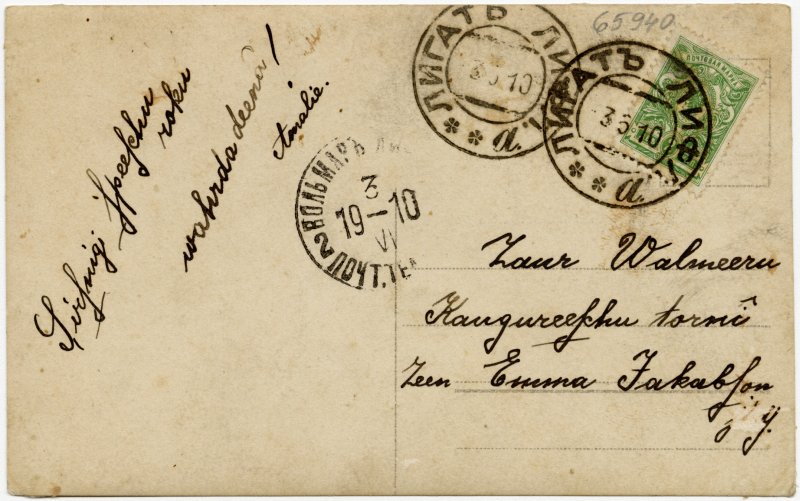 Sirsnigi speeschu
roku
wahrda deenâ!
Amalie.
65940
ЛИГАТЪ ЛИФ
3 6 10
* * а.
ЛИГАТЪ ЛИФЛ.
3 6 10
* * а.
ПОЧТОВАЯ МАРКА
ВОЛЬМАРЪ ЛИ
3
19–10
VI
2 ПОЧТ.ТЕЛ
Zaur Walmeeru
Kaugureeschu tornî
Zeen Emma Jakabson